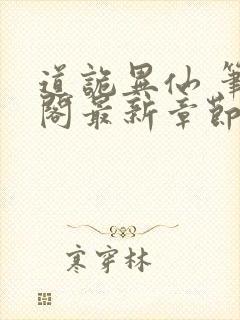 道詭異仙 筆
閣最新章節
寒穿林